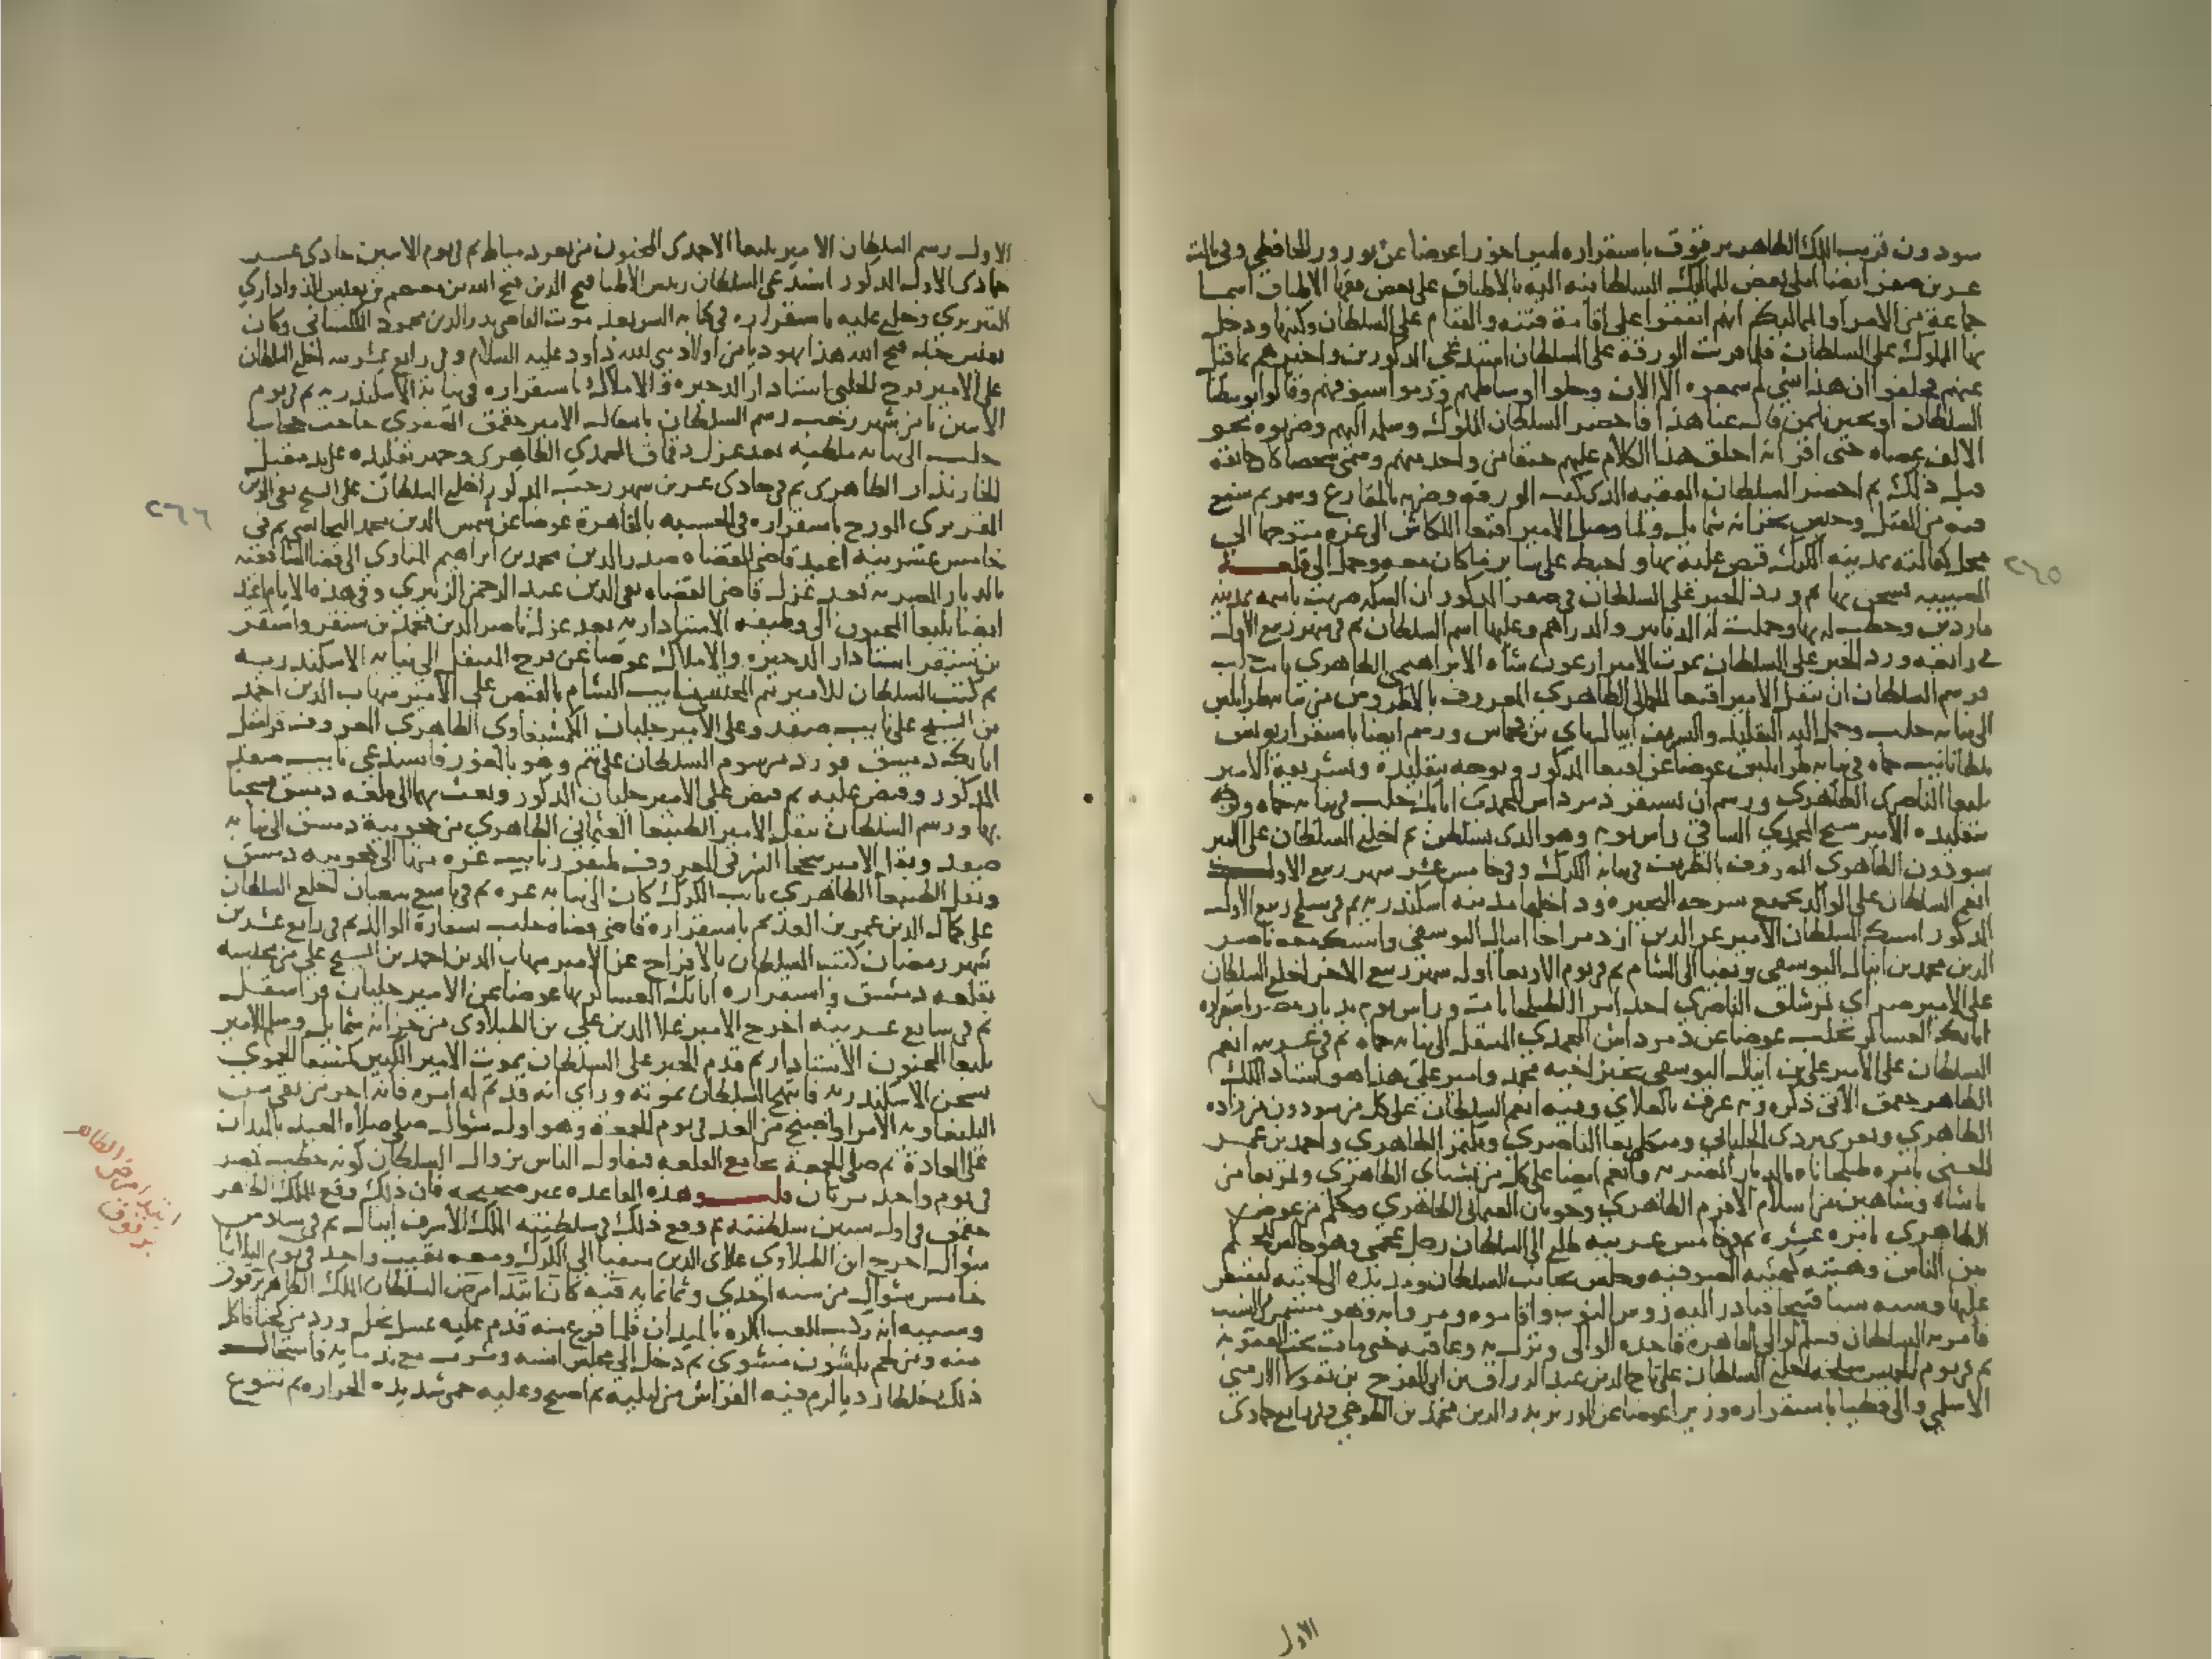 سودون قريب الملك الظاهر برقوق باستقراره امير اخورا عوضا عن نوروز الحافظي وفي ثالث
عشرين صفر ايضا املى بعض المماليك السلطانيه
جماعة من الامرا والمماليك انهم اتفقوا على اقامة فتنه والقيام على السلطان وكتبها ودخل
بها المملوك على السلطان فلما قريت الورقه على السلطان استدعى المذكورين واخبرهم بما قيل
عنهم فحلفوا ان هذا شي لم يسمعوه الا الان وحلوا اوساطهم ورموا سيوفهم وقالوا يوسطنا
السلطان او يخبرنا بمن قال عنا هذا فاحضر السلطان المملوك وسلمه اليهم وضربوه نحو
الالف عصاه حتى اقر انه اختلق هذا الكلام عليهم حنقا من واحد منهم وسمى شخصا كان خاتنه
قبل ذلك ثم احضر السلطان الفقيه الذي كتب الورقه وضربه بالمقارع وسمر ثم شفع
فيه من القتل وحبس بخزانه شمايل ولما وصل الامير اقبغا اللكاش الى غزه متوجها الى
محل كفالته بمدينه الكرك قبض عليه بها واحيط على ساير ما كان معه وحمل الى قلعة
الصبيبه فسجن بها ثم ورد الخبر على السلطان في صفر المذكور ان السكه ضربت باسمه بمدينه
ماردين وخطب له بها وحملت له الدنانير والدراهم وعليها اسم السلطان ثم في شهر ربيع الاول
في رابعه ورد الخبر على السلطان بموت الامير ارغون شاه الابراهيمي الظاهري نايب حلب
فرسم السلطان ان ينقل الامير اقبغا الجمالي الظاهري المعروف بالاطروش من نيابه طرابلس
الى نيابه حلب وحمل اليه التقليد والتشريف اينال باي بن قجماس ورسم ايضا باستقرار يونس
بلطا نايب حماه في نيابه طرابلس عوضا عن اقبغا المذكور وتوجه بتقليده وتشريفه الامير
يلبغا الناصري الظاهري ورسم ان يستقر دمرداش المحمدي اتابك حلب في نيابه حماه وتوجه
بتقليده الامير شيخ المحمودي الساقي راس نوبه وهو الذي تسلطن ثم اخلع السلطان على الامير
سودون الظاهري المعروف بالظريف في نيابه الكرك وفي خامس عشر شهر ربيع الاول
انعم السلطان على الوالد بجميع سرحه البحيره وداخلها مدينه اسكندريه ثم في سلخ ربيع الاول
المذكور امسك السلطان الامير عز الدين ازدمر اخا اينال اليوسفي وامسك معه ناصر
الدين محمد بن اينال اليوسفي ونفيا الى الشام ثم في يوم الاربعا اول شهر ربيع الاخر اخلع السلطان
على الامير صراي تمرشلق الناصري احد امرا الطبلخانات وراس نوبه بديار مصر باستقراره
اتابك العساكر بحلب عوضا عن دمرداش المحمدي المنتقل الى نيابه حماه ثم في عشرينه انعم
السلطان على الامير علي بن اينال اليوسفي بخبز اخيه محمد وامير علي هذا هو استاد الملك
الظاهر جقمق الاتي ذكره وبه عرف بالعلاي وفيه انعم السلطان على كل من سودون من زاده
الظاهري وتغري بردي الجلباني ومنكلي بغا الناصري وبكتمر الظاهري واحمد بن عمر
الحسني بامره طبلخاناه بالديار المصريه وانعم ايضا على كل من بشباي الظاهري وتمربغا من
باشاه وشاهين من اسلام الافرم الظاهري وجوبان العثماني الظاهري وجكم من عوض
الظاهري بامره عشره ثم في خامس عشرينه طلع الى السلطان رجل عجمي وهو جالس للحكم
بين الناس وهيئته كهيئه الصوفيه وجلس بجانب السلطان ومد يده الى لحيته ليقبض
عليها وسبه سبا قبيحا فبادر اليه روس النوب واقاموه ومروا به وهو مستمر في السب
فامر به السلطان فسلم لوالي القاهره فاخذه الوالي ونزل به وعاقبه حتى مات تحت العقوبه
ثم في يوم الخميس سلخه اخلع السلطان على تاج الدين عبد الرزاق بن ابي الفرج بن نقولا الارمني
الاسلمي والي قطيا باستقراره وزيرا عوضا عن الوزير بدر الدين محمد بن الطوخي وفي رابع جمادى
الاول
٢٦٥
الاول رسم السلطان الامير يلبغا الاحمدي المجنون من ثغر دمياط ثم في يوم الاثنين حادي عشر
جمادى الاول المذكور استدعى السلطان رييس الاطبا فتح الدين فتح الله بن معتصم بن نفيس الداوداري
التبريزي وخلع عليه باستقراره في كتابه السر بعد موت القاضي بدر الدين محمود الكلستاني وكان
نفيس جد فتح الله هذا يهوديا من اولاد نبي الله داود عليه السلام وفي رابع عشرينه اخلع السلطان
على الامير فرج الحلبي استادار الذخيره والاملاك باستقراره في نيابه الاسكندريه ثم في يوم
الاثنين ثامن شهر رجب رسم السلطان بانتقال الامير جقمق الصفوي حاجب حجاب
حلب الى نيابه ملطيه بعد عزل دقماق المحمدي الظاهري وجهز تقليده على يد مقبل
الخازندار الظاهري ثم في حادي عشرين شهر رجب المذكور اخلع السلطان على الشيخ تقي الدين
المقريزي المورخ باستقراره في الحسبه بالقاهرة عوضا عن شمس الدين محمد البجانسي ثم في
خامس عشرينه اعيد قاضي القضاه صدر الدين محمد بن ابراهيم المناوي الى قضا الشافعيه
بالديار المصريه بعد عزل قاضي القضاه تقي الدين عبد الرحمن الزبيري وفي هذه الايام اعيد
ايضا يلبغا المجنون الى وظيفه الاستداريه بعد عزل ناصر الدين محمد بن سنقر واستقر
بن سنقر استادار الذخيره والاملاك عوضا عن فرج المنتقل الى نيابه الاسكندريه
ثم كتب السلطان للامير تنم الحسني نايب الشام بالقبض على الامير شهاب الدين احمد
بن الشيخ علي نايب صفد وعلى الامير جلبان الكمشبغاوي الظاهري المعروف قراسقل
اتابك دمشق فورد مرسوم السلطان على تنم وهو بالغور فاستدعى نايب صفد
المذكور وقبض عليه ثم قبض على الامير جلبان المذكور وبعث بهما الى قلعه دمشق فسجنا
بها ورسم السلطان بنقل الامير الطنبغا العثماني الظاهري من حجوبيه دمشق الى نيابه
صفد ونقل الامير بيخجا الشرفي المعروف طيفور نايب غزه منها الى حجوبيه دمشق
ونقل الطنبغا الظاهري نايب الكرك كان الى نيابه غزه ثم في تاسع شعبان اخلع السلطان
على كمال الدين عمر بن العديم باستقراره قاضي قضاه حلب بسفارة الوالد ثم في رابع عشرين
شهر رمضان كتب السلطان بالافراج عن الامير شهاب الدين احمد بن الشيخ علي من محبسه
بقلعه دمشق واستقراره اتابك العساكر بها عوضا عن الامير جلبان قراسقل
ثم في سابع عشرينه اخرج الامير علا الدين علي بن الطبلاوي من خزانه شمايل وسلم للامير
يلبغا المجنون الاستادار ثم قدم الخبر على السلطان بموت الامير الكبير كمشبغا الحموي
بسجن الاسكندريه فابتهج السلطان بموته وراى انه قد تم له امره فانه اخر من بقي من
اليلبغاويه الامرا واصبح من الغد في يوم الجمعة وهو اول شوال صلى صلاه العيد بالميدان
على العادة ثم صلى الجمعة بجامع القلعه فتفاول الناس بزوال السلطان كونه خطب بمصر
في يوم واحد مرتان قلت وهذه القاعده غير صحيحه فان ذلك وقع للملك الظاهر
جقمق في اول سنين سلطنته ثم وقع ذلك في سلطنه الملك الاشرف اينال ثم في سادس
شوال اخرج ابن الطبلاوي علاي الدين منفيا الى الكرك ومعه نقيب واحد في يوم الثلاثا
خامس شوال من سنه احدى وثمانمايه فيه كان ابتدا مرض السلطان الملك الظاهر برقوق
وسببه انه ركب للعب الكره بالميدان فلما فرغ منه قدم عليه عسل نحل ورد من كختا فاكل
منه ومن لحم بلشون مشوي ثم دخل الى مجلس انسه وشرب مع ندمايه فاستحال
ذلك خلطا رديا لزم فيه الفراش من ليليه ثم اصبح وعليه حمى شديده الحراره ثم تنوع
٢٦٦
ابتدا مرض الظاهر
برقوق